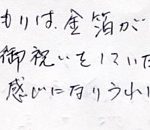 もりは、金箔が
御祝いをしていた
感じになりうれし